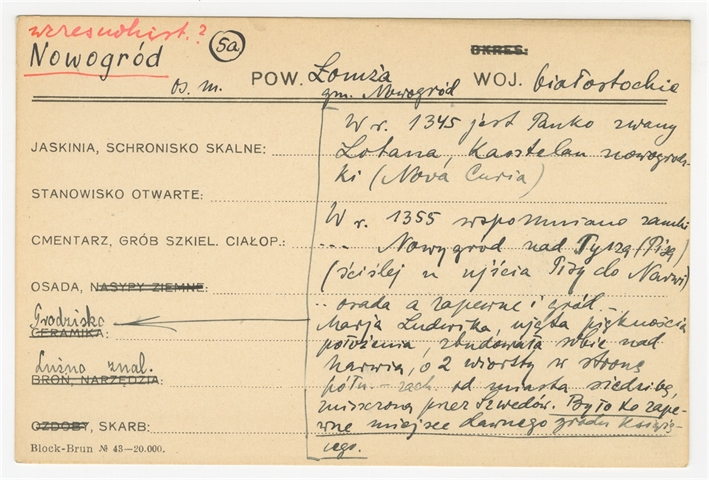 wczesnohist.?
Nowogród
5a
OKRES:
os. m.
POW. Łomża
gm. Nowogród
WOJ. białostockie
JASKINIA, SCHRONISKO SKALNE:
STANOWISKO OTWARTE:
CMENTARZ, GRÓB SZKIEL. CIAŁOP.:
OSADA, NASYPY ZIEMNE:
Grodzisko
CERAMIKA:
Luźno znal.
BROŃ, NARZĘDZIA:
OZDOBY, SKARB:
Block-Brun № 43-20.000.
W r. 1345 jest Panko zwany
Lotana, Kasztelan nowogrodz-
ki (Nova Curia)
W r. 1355 wspomniano zamki
--- Nowygrod nad Pyszą (Pisą)
(ściślej u ujścia Pisy do Narwi)
.. osada a zapewne i gród --
Marja Ludwika, ujęta pięknością
położenia, zbudowała sobie nad
Narwią, o 2 wiorsty w stronę
półn.-zach. od miasta siedzibę,
zniszczoną przez Szwedów. Było to zape-
wne miejsce dawnego grodu książę-
cego.